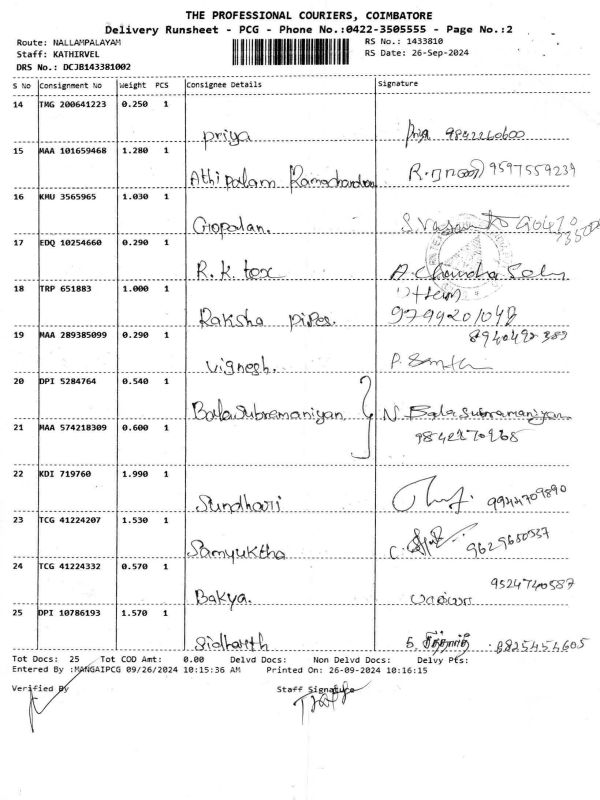 THE PROFESSIONAL COURIERS, COIMBATORE
Delivery Runsheet - PCG - Phone No.:0422-3505555 - Page No.:2
Route: NALLAMPALAYAM RS No.: 1433810
Staff: KATHIRVEL RS Date: 26-Sep-2024
DRS No.: DCJB143381002
S No Consignment No Weight PCS Consignee Details Signature
14 TMG 200641223 0.250 1
priya priya 9842260600
15 MAA 101659468 1.280 1
Athipalam Ramachandran R. ராணி 9597559239
16 KMU 3565965 1.030 1
Gopalan.
17 EDQ 10254660 0.290 1
R.K. tex A. Chandra
18 TRP 651883 1.000 1
Raksha pipes. 9799201048
19 MAA 289385099 0.290 1 8940492389
Vignesh. P.
20 DPI 5284764 0.540 1
BalaSubramaniyan N. BalaSubramaniyan
21 MAA 574218309 0.600 1 9842170965
22 KDI 719760 1.990 1
Sundhari 9944709890
23 TCG 41224207 1.530 1
Samyuktha C. 9629650537
24 TCG 41224332 0.570 1 9524740587
Bakya.
25 DPI 10786193 1.570 1
Sidharth S. 8825454605
Tot Docs: 25 Tot COD Amt: 0.00 Delvd Docs: Non Delvd Docs: Delvy Pts:
Entered By :MANGAIPCG 09/26/2024 10:15:36 AM Printed On: 26-09-2024 10:16:15
Verified By Staff Signature